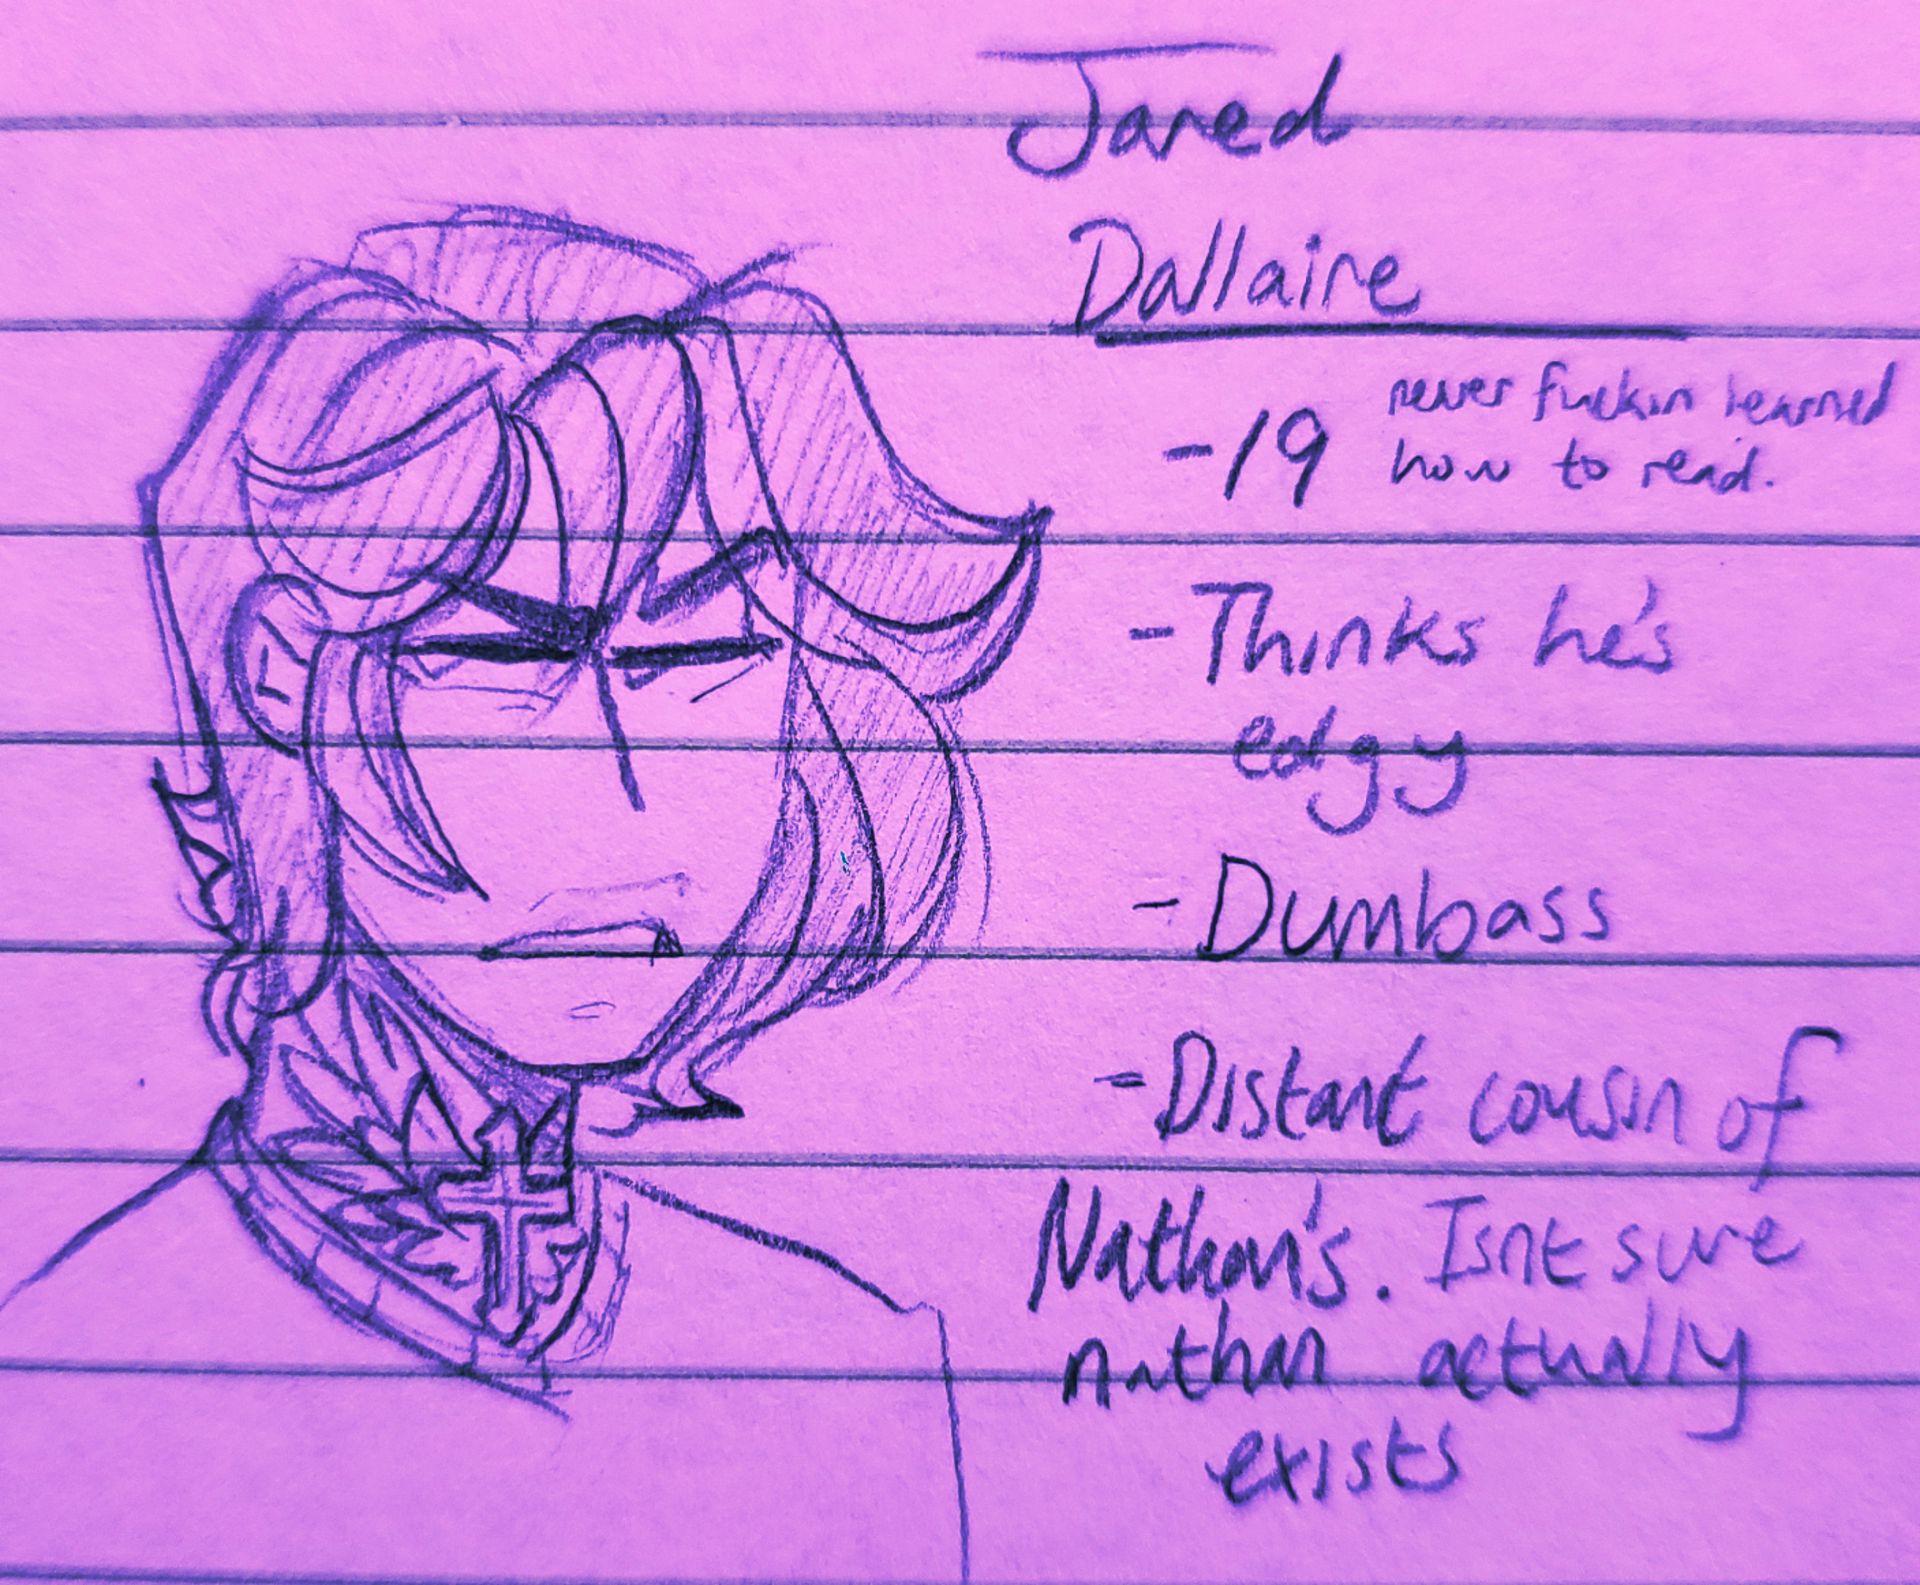 Jared
Dallaire
-19 never fuckin learned
how to read.
-Thinks he's
edgy
-Dumbass
-Distant cousin of
Nathan's. Isnt sure
nathan actually
exists